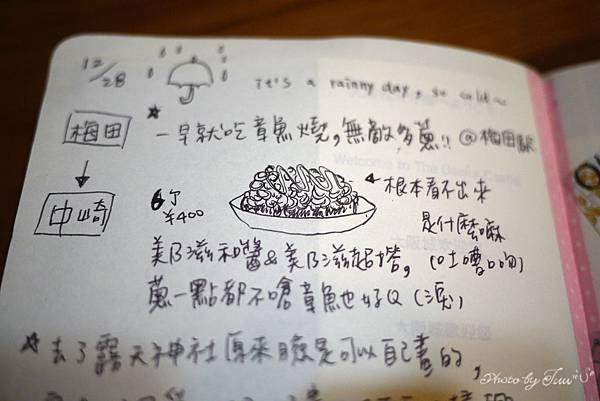 12/28
it's a rainny day, so cold~
梅田
＊一早就吃章魚燒，無敵多蔥!! @梅田駅
中崎
6个
¥400
根本看不出來
是什麼嘛
(吐嘈口吻)
美乃滋和醬&美乃滋超搭，
蔥一點都不嗆章魚也好Q (淚)
＊去了露天神社原來臉是可以自己畫的，
Photo by Juu